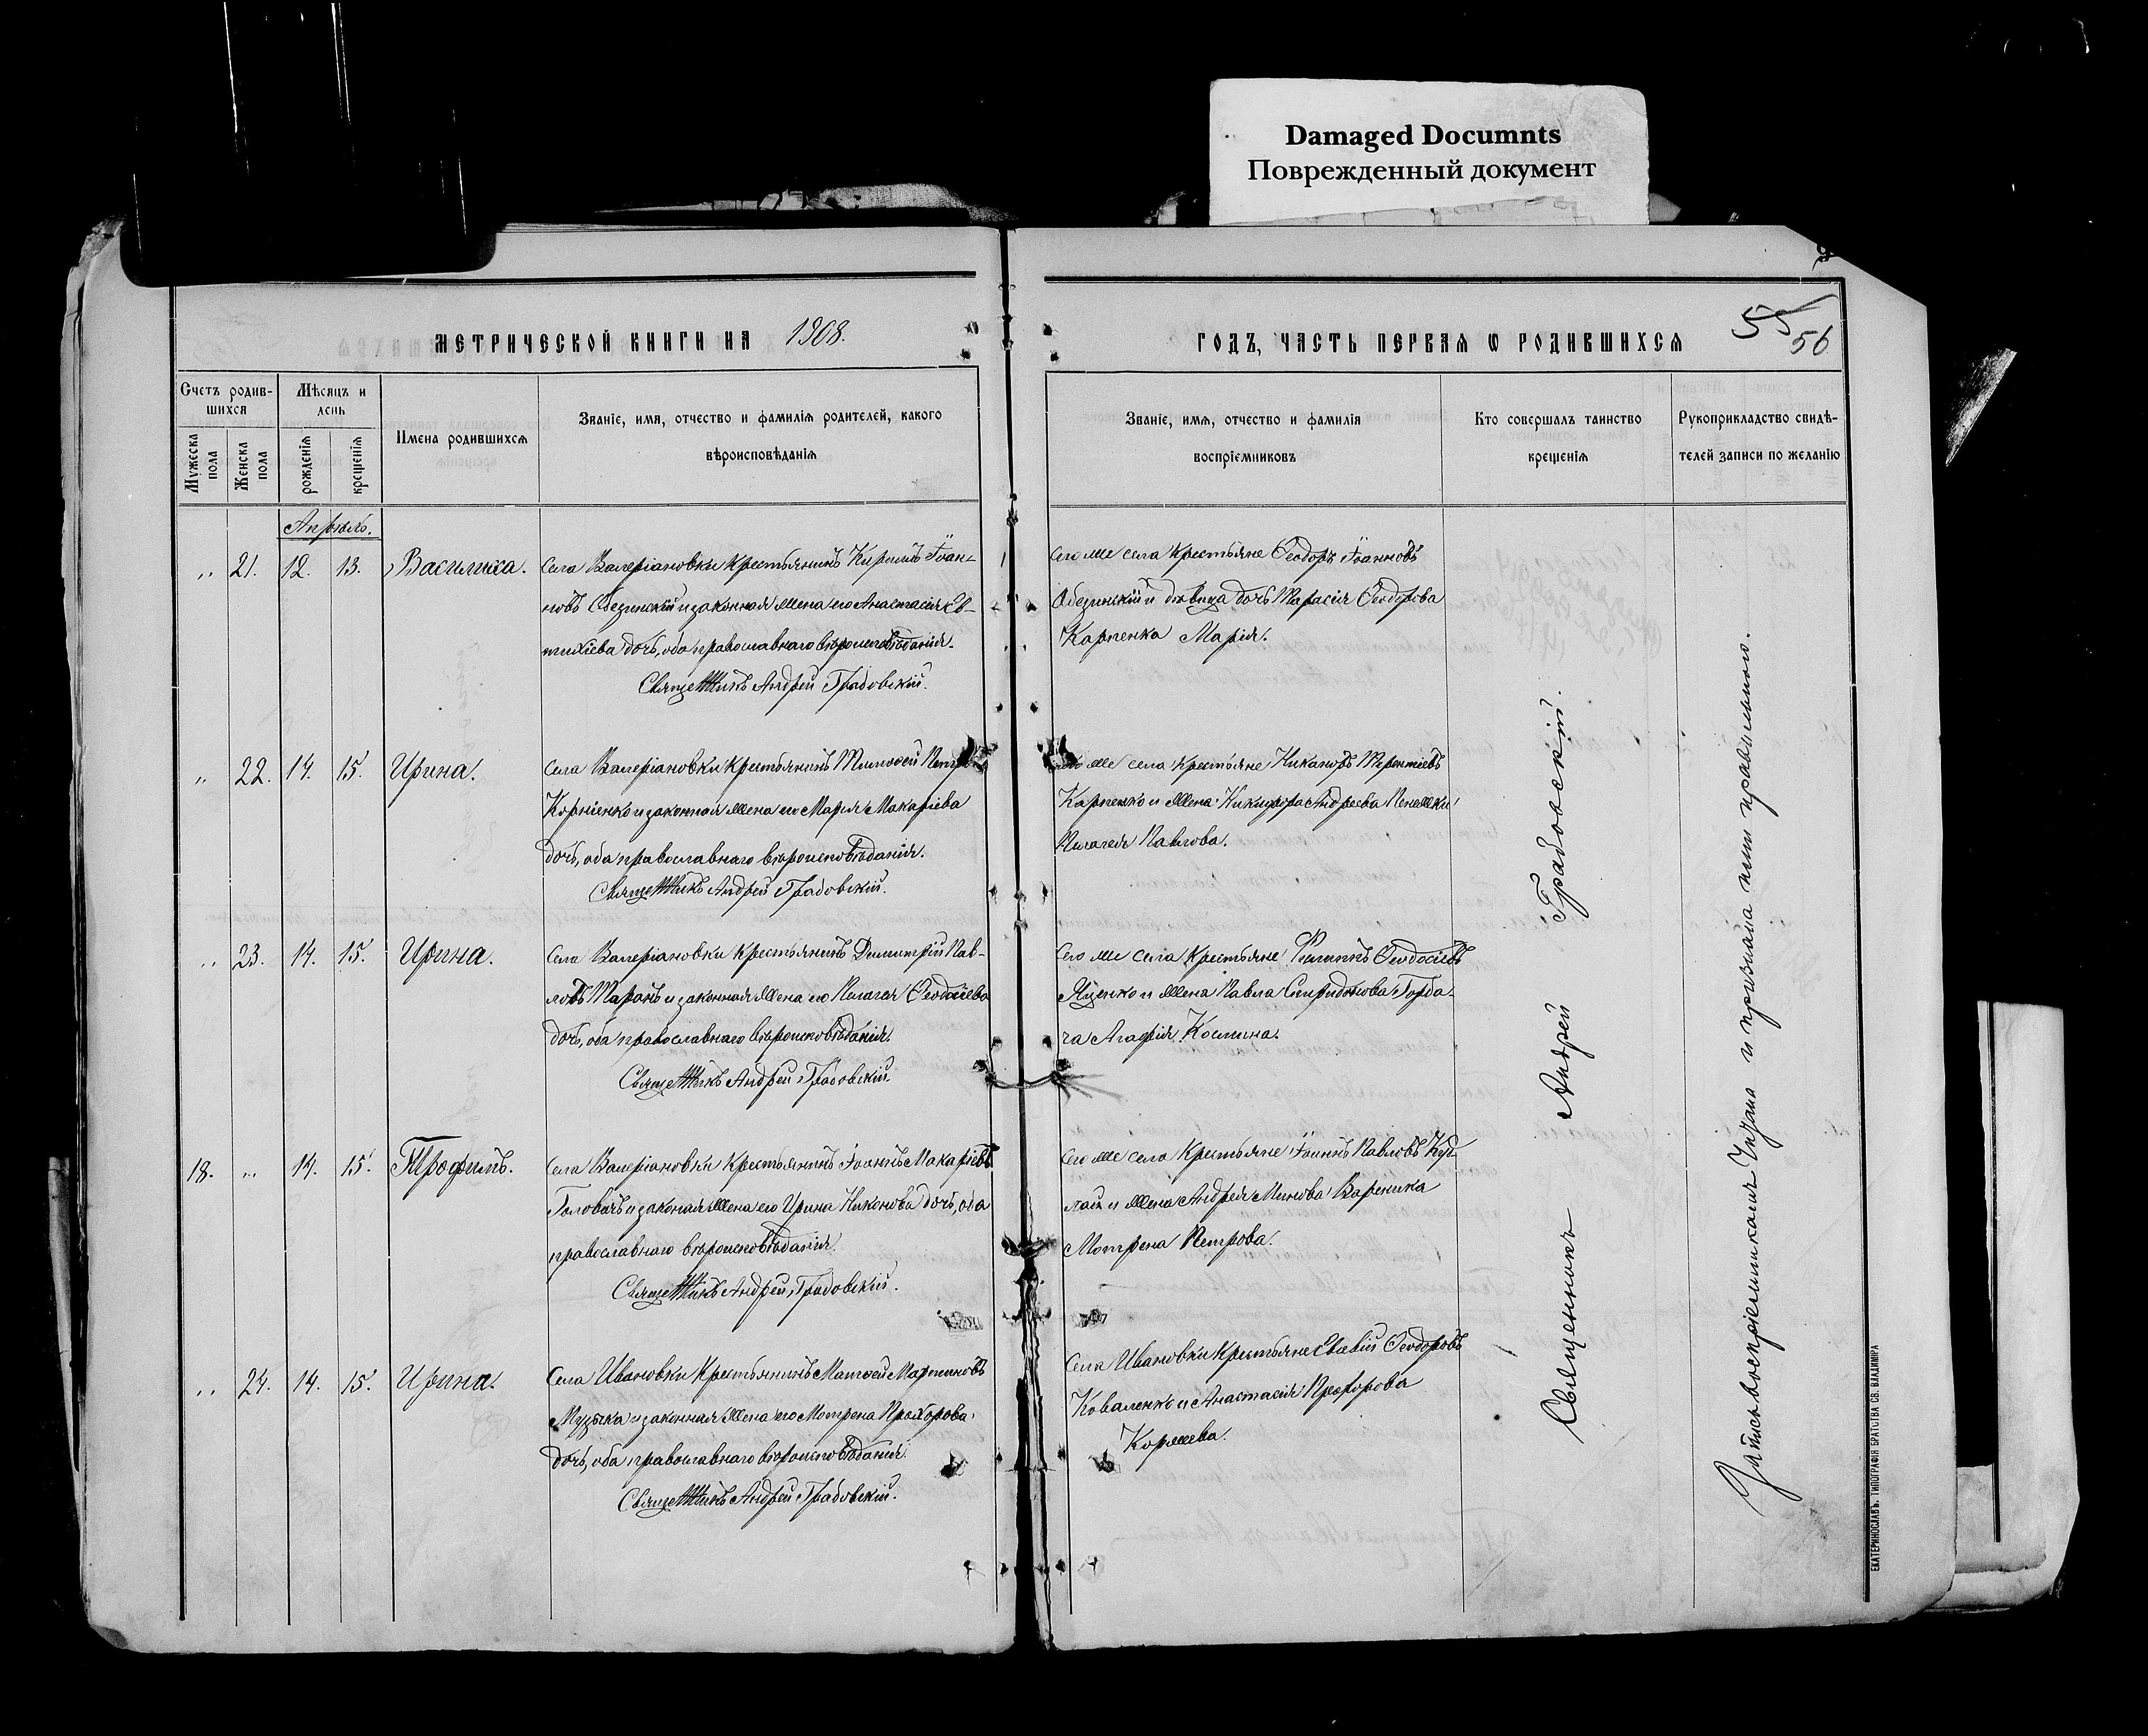 Damaged Documnts
Поврежденный документ
МЕТРИЧЕСКОЙ КНИГИ НА 1908.
ГОДЪ, ЧАСТЬ ПЕРВАЯ Ѡ РОДИВШИХСЯ
55
56
Счетъ родив-
шихся
Мужеска пола
Женска пола
Мѣсяцъ и
день
рожденія
крещенія
Имена родившихся
Званіе, имя, отчество и фамилія родителей, какого
вѣроисповѣданія
Званіе, имя, отчество и фамилія
воспріемниковъ
Кто совершалъ таинство
крещенія
Рукоприкладство свидѣ-
телей записи по желанію
Апрѣль.
„ 21. 12. 13. Василиса.
Села Валеріановки крестьянинъ Кириллъ Іоан-
новъ и законная жена его Анастасія Ев-
тихіева дочь, оба православнаго вѣроисповѣданія.
Священникъ Андрей Грабовскій.
Сего же села крестьяне Ѳеодоръ Іоанновъ
и дѣвица дочь Тарасія Ѳеодорова
Карпенка Марія.
„ 22. 14. 15. Ирина.
Села Валеріановки крестьянинъ Тимоѳей
Корніенко и законная жена его Марія Макаріева
дочь, оба православнаго вѣроисповѣданія.
Священникъ Андрей Грабовскій.
же села крестьяне Никаноръ Терентіевъ
Карпенко и жена Никифора Андреева
Пелагея Павлова.
„ 23. 14. 15. Ирина.
Села Валеріановки крестьянинъ Димитрій Пав-
ловъ Таранъ и законная жена его Пелагея Ѳеодосіева
дочь, оба православнаго вѣроисповѣданія.
Священникъ Андрей Грабовскій.
Сего же села крестьяне Филиппъ Ѳеодосіевъ
Яценко и жена Павла Спиридонова Горба-
ча Агафія Космина.
18. „ 14. 15. Трофимъ.
Села Валеріановки крестьянинъ Іоаннъ Макаріевъ
Головачъ и законная жена его Ирина Никонова дочь, оба
православнаго вѣроисповѣданія.
Священникъ Андрей Грабовскій.
Сего же села крестьяне Іоаннъ Павловъ
и жена Андрея Минова Вареника
Мотрена Петрова.
„ 24. 14. 15. Ирина.
Села Ивановки крестьянинъ Матѳей Мартиновъ
Музыка и законная жена его Мотрена Прохорова
дочь, оба православнаго вѣроисповѣданія.
Священникъ Андрей Грабовскій.
Села Ивановки крестьяне Евсевій Ѳеодоровъ
Коваленко и Анастасія Прохорова
Коржева.
Священникъ Андрей Грабовскій.
Запись воспріемниками читана и признана ими правильною.
ЕКАТЕРИНОСЛАВЪ. ТИПОГРАФІЯ БРАТСТВА СВ. ВЛАДИМІРА